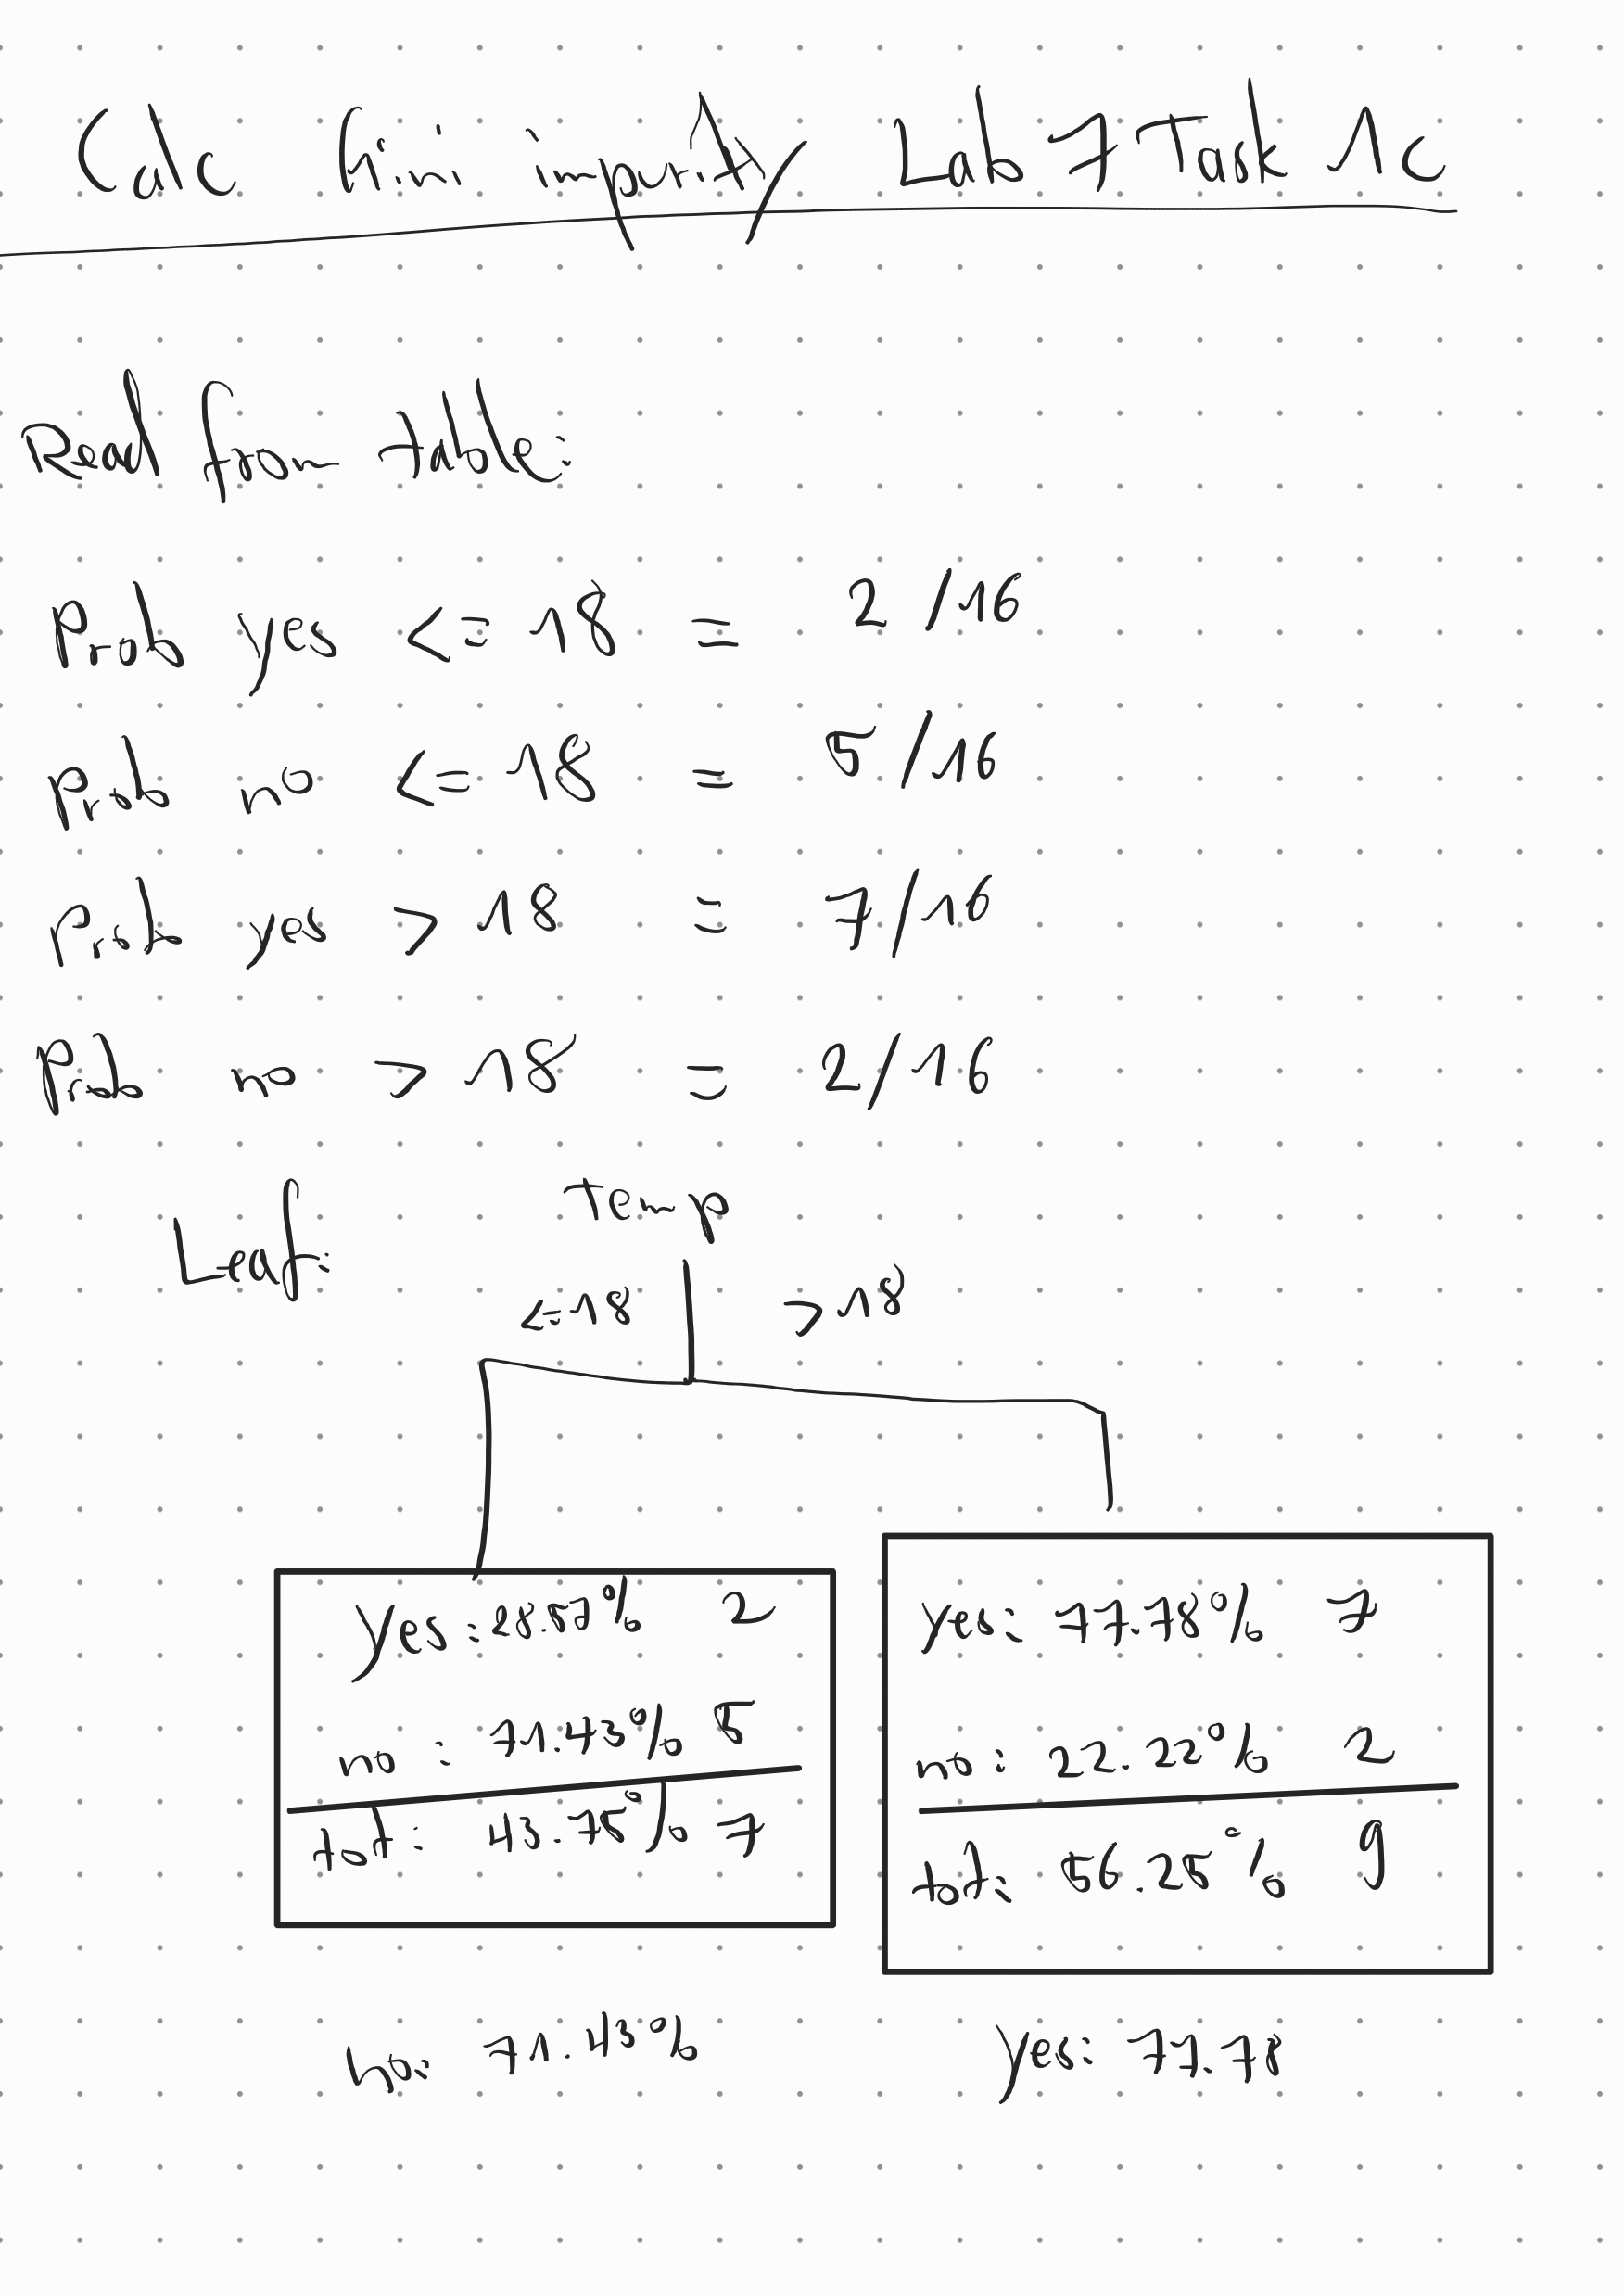 Calc Gini impurity Lab 7 Task 1c
Read from table:
Prob yes <= 18 = 2/16
Prob no <= 18 = 5/16
Prob yes > 18 = 7/16
Prob no > 18 = 2/16
Leaf: Temp
<=18 >18
yes: 28.57% 2
no: 71.43% 5
tot: 43.75% 7
yes: 77.78% 7
no: 22.22% 2
tot: 56.25% 9
no: 71.43% yes: 77.78